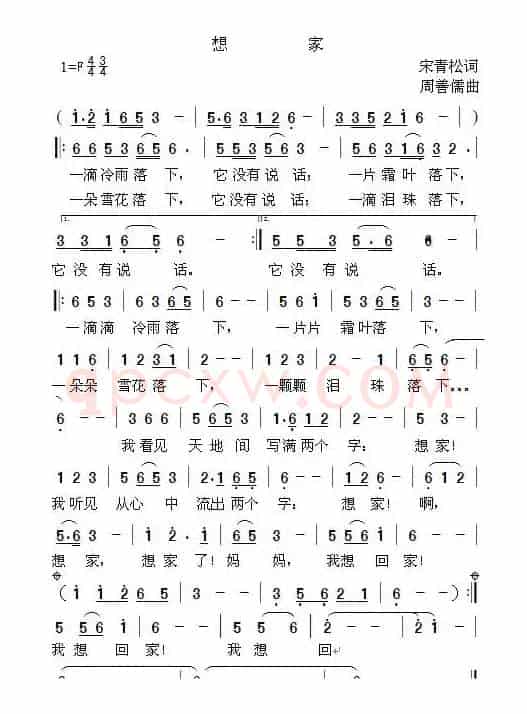 想 家
1=F 4/4 3/4
宋青松词
周善儒曲
( 1·2 1 6 5 3 | 5·6 3 1 2 6 | 3 3 5 2 1 6 )
‖: 3 3 5 6 5 2 · | 5 5 3 2 3 · | 5 6 3 1 6 3 2 · |
一滴冷雨落下, 它没有说话; 一片霜叶落下,
一朵雪花落下, 它没有说话; 一滴泪珠落下,
1. 2.
3 3 1 6 5 6 - :‖ 5 5 3 5·6 6 -
它没有说话。 它没有说话。
‖: 6 5 3 | 6 3 6 5 | 6 - - | 5 6 1 | 6 5 6 5 | 3 - - |
一滴滴 冷雨落下, 一片片 霜叶落下,
1 1 6 | 1 2 3 1 | 2 - - | 1 2 3 | 2 - - | 6 5 6 - |
一朵朵 雪花落下, 一颗颗 泪珠落下...
6 - - | 3 6 6 | 5 6 5 3 | 1·6 1 2 | 3 - - | 6 5 - |
我看见 天地间 写满两个字: 想家!
1 2 3 | 5 6 5 3 | 2·1 6 5 | 6 - - | 1 2 - | 6 - - |
我听见 从心中 流出两个字: 想家! 啊,
5·6 3 - | 1 2 · | 2·5 6 | 3 - - | 5 5 6 | 1 2 - |
想家, 想家了! 妈妈, 我想回家!
( 1 1 2 6 | 3 5 6 5 3 | 5 6 2 1 | 6 - - | 6 - - ) :‖
5 5 6 | 1 - - | 6 - - | 5 5 6 | 1 - - | 1 - - |
我想回家! 我想回
qpcxw.com